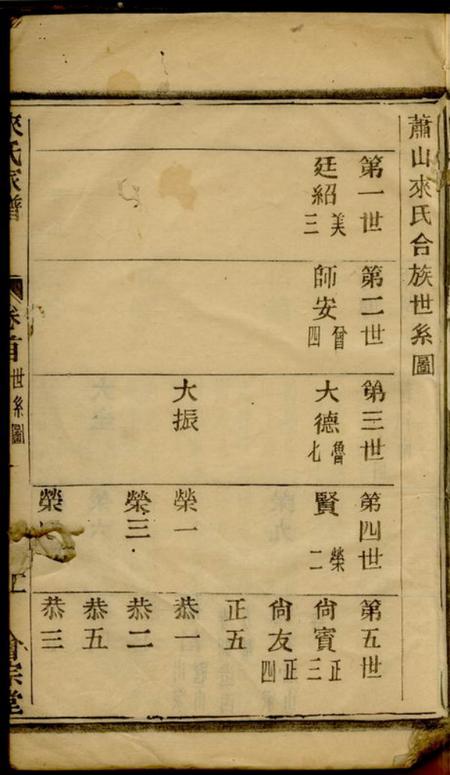 蕭山來氏合族世系圖
第一世
廷紹 美三
第二世
師安 曾四
第三世
大德 魯七
大振
第四世
賢 榮二
榮一
榮三
榮
第五世
尚賓 正三
尚友 正四
正五
恭一
恭二
恭五
恭三
來氏家譜
卷首
世系圖
會宗堂